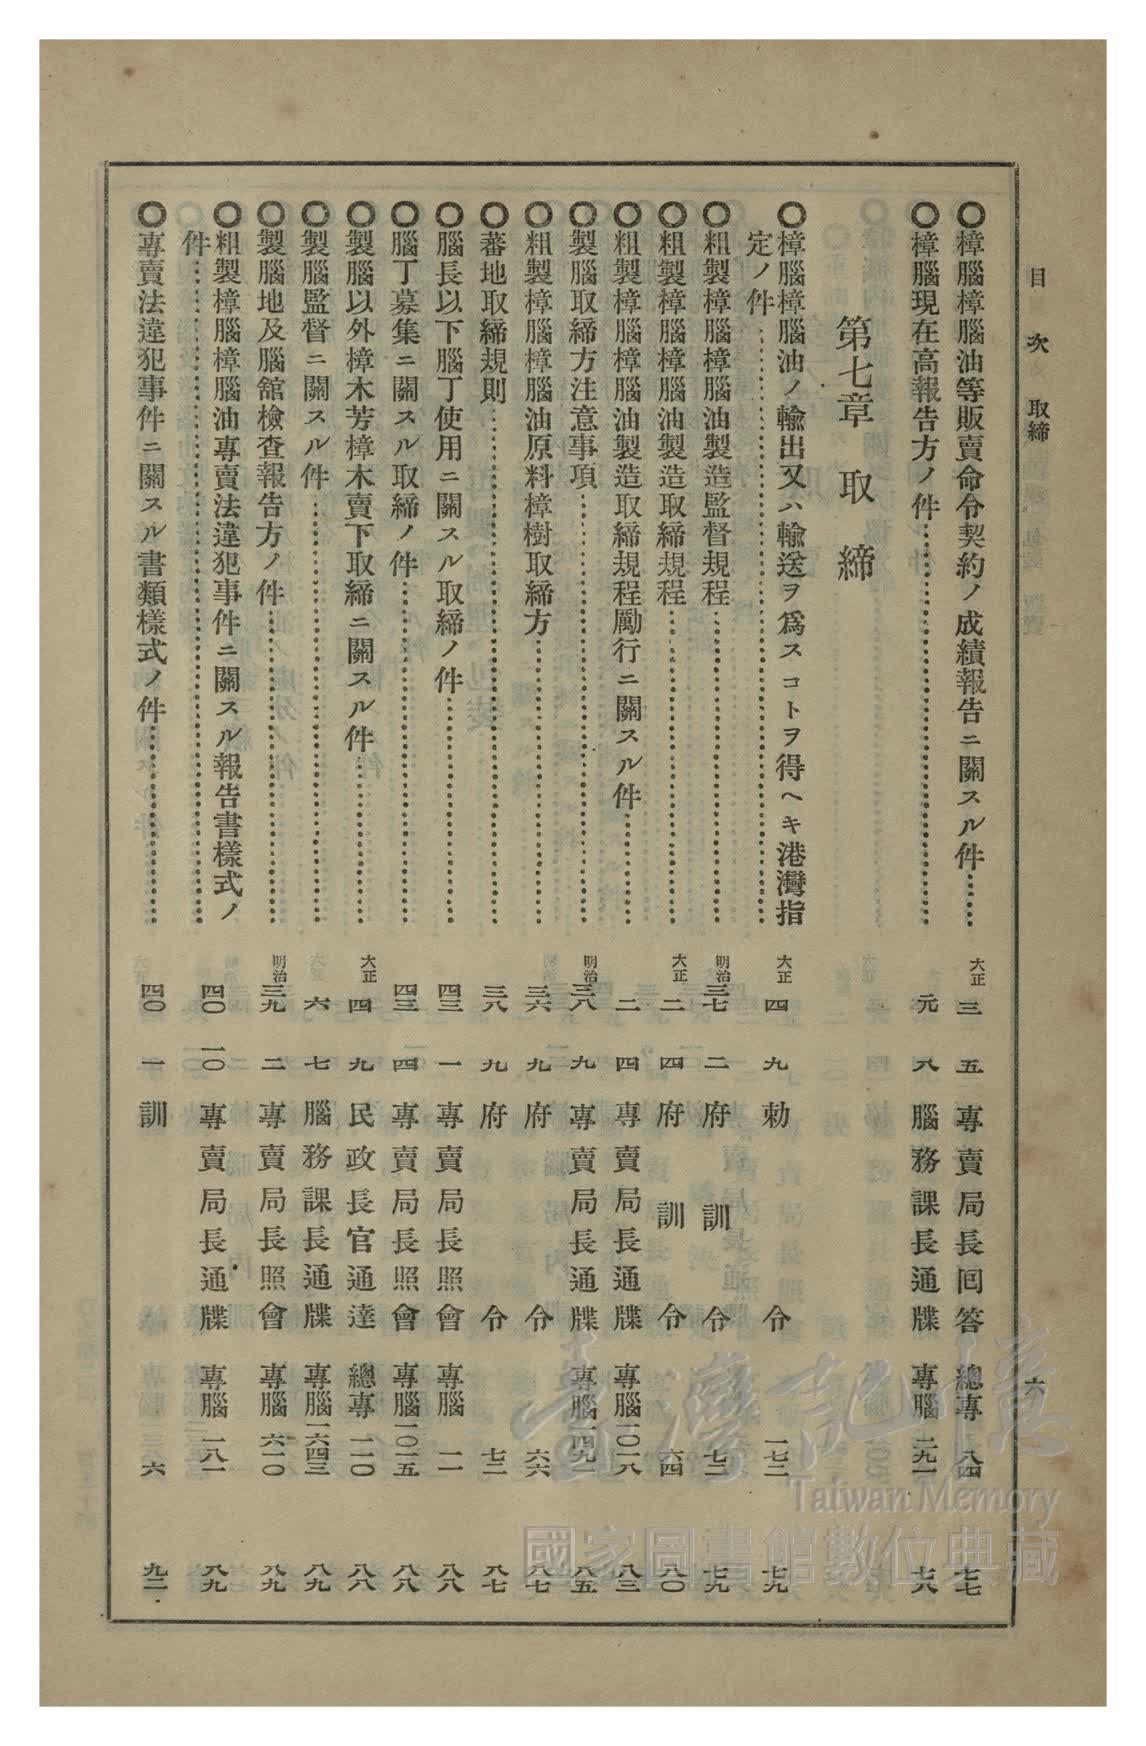 目次 取締 六
◯樟腦樟腦油等販賣命令契約ノ成績報告ニ關スル件…… 大正 三 五 專賣局長回答 總專 八四 七七
◯樟腦現在高報告方ノ件…… 元 八 腦務課長通牒 專腦 二九一 七八
第七章 取締
◯樟腦樟腦油ノ輸出又ハ輸送ヲ爲スコトヲ得ヘキ港灣指
定ノ件…… 大正 四 九 勅令 一七二 七九
◯粗製樟腦樟腦油製造監督規程…… 明治 三七 二 府訓令 七二 七九
◯粗製樟腦樟腦油製造取締規程…… 大正 二 四 府訓令 六四 八〇
◯粗製樟腦樟腦油製造取締規程勵行ニ關スル件…… 二 四 專賣局長通牒 專腦 一〇一八 八三
◯製腦取締方注意事項…… 明治 三八 九 專賣局長通牒 專腦 一四九一 八五
◯粗製樟腦樟腦油原料樟樹取締方…… 三六 九 府令 六六 八七
◯蕃地取締規則…… 三八 九 府令 七二 八七
◯腦長以下腦丁使用ニ關スル取締ノ件…… 四三 一 專賣局長照會 專腦 一一 八八
◯腦丁募集ニ關スル取締ノ件…… 四三 四 專賣局長照會 專腦 一〇一五 八八
◯製腦以外樟木芳樟木賣下取締ニ關スル件…… 大正 四 九 民政長官通達 總專 一一〇 八八
◯製腦監督ニ關スル件…… 六 七 腦務課長通牒 專腦 一六四三 八九
◯製腦地及腦舘檢查報告方ノ件…… 明治 三九 二 專賣局長照會 專腦 六一〇 八九
◯粗製樟腦樟腦油專賣法違犯事件ニ關スル報告書樣式ノ
件…… 四〇 一〇 專賣局長通牒 專腦 一八一 八九
◯專賣法違犯事件ニ關スル書類樣式ノ件…… 四〇 一 訓 六 九二
臺灣記憶
Taiwan Memory
國家圖書館數位典藏